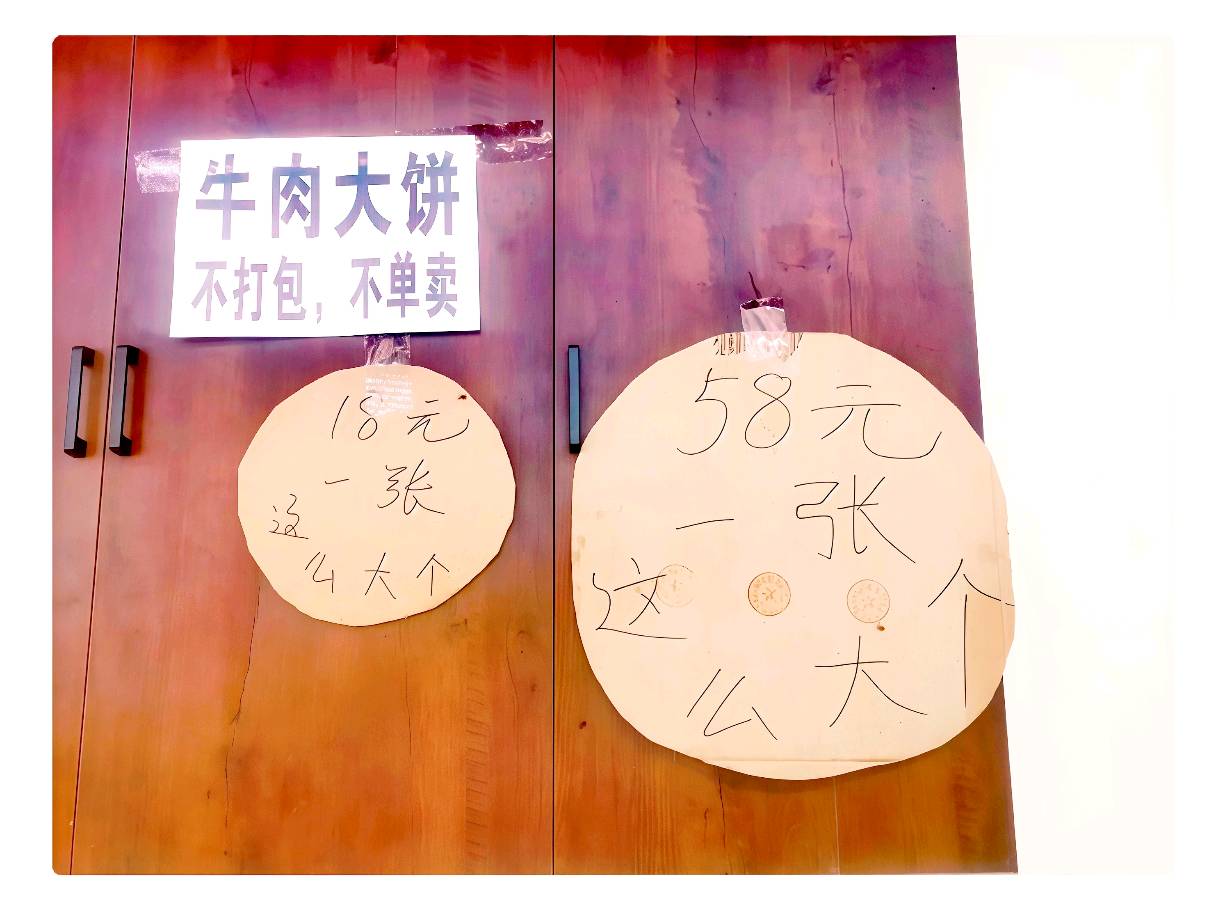 牛肉大饼
不打包，不单卖
18元
一张
这
么大个
58元
一张
这
么大个